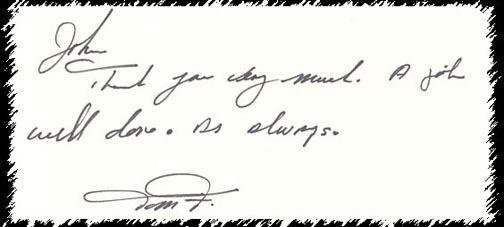 John
Thank you very much. A job
well done. As always.
Tom F.